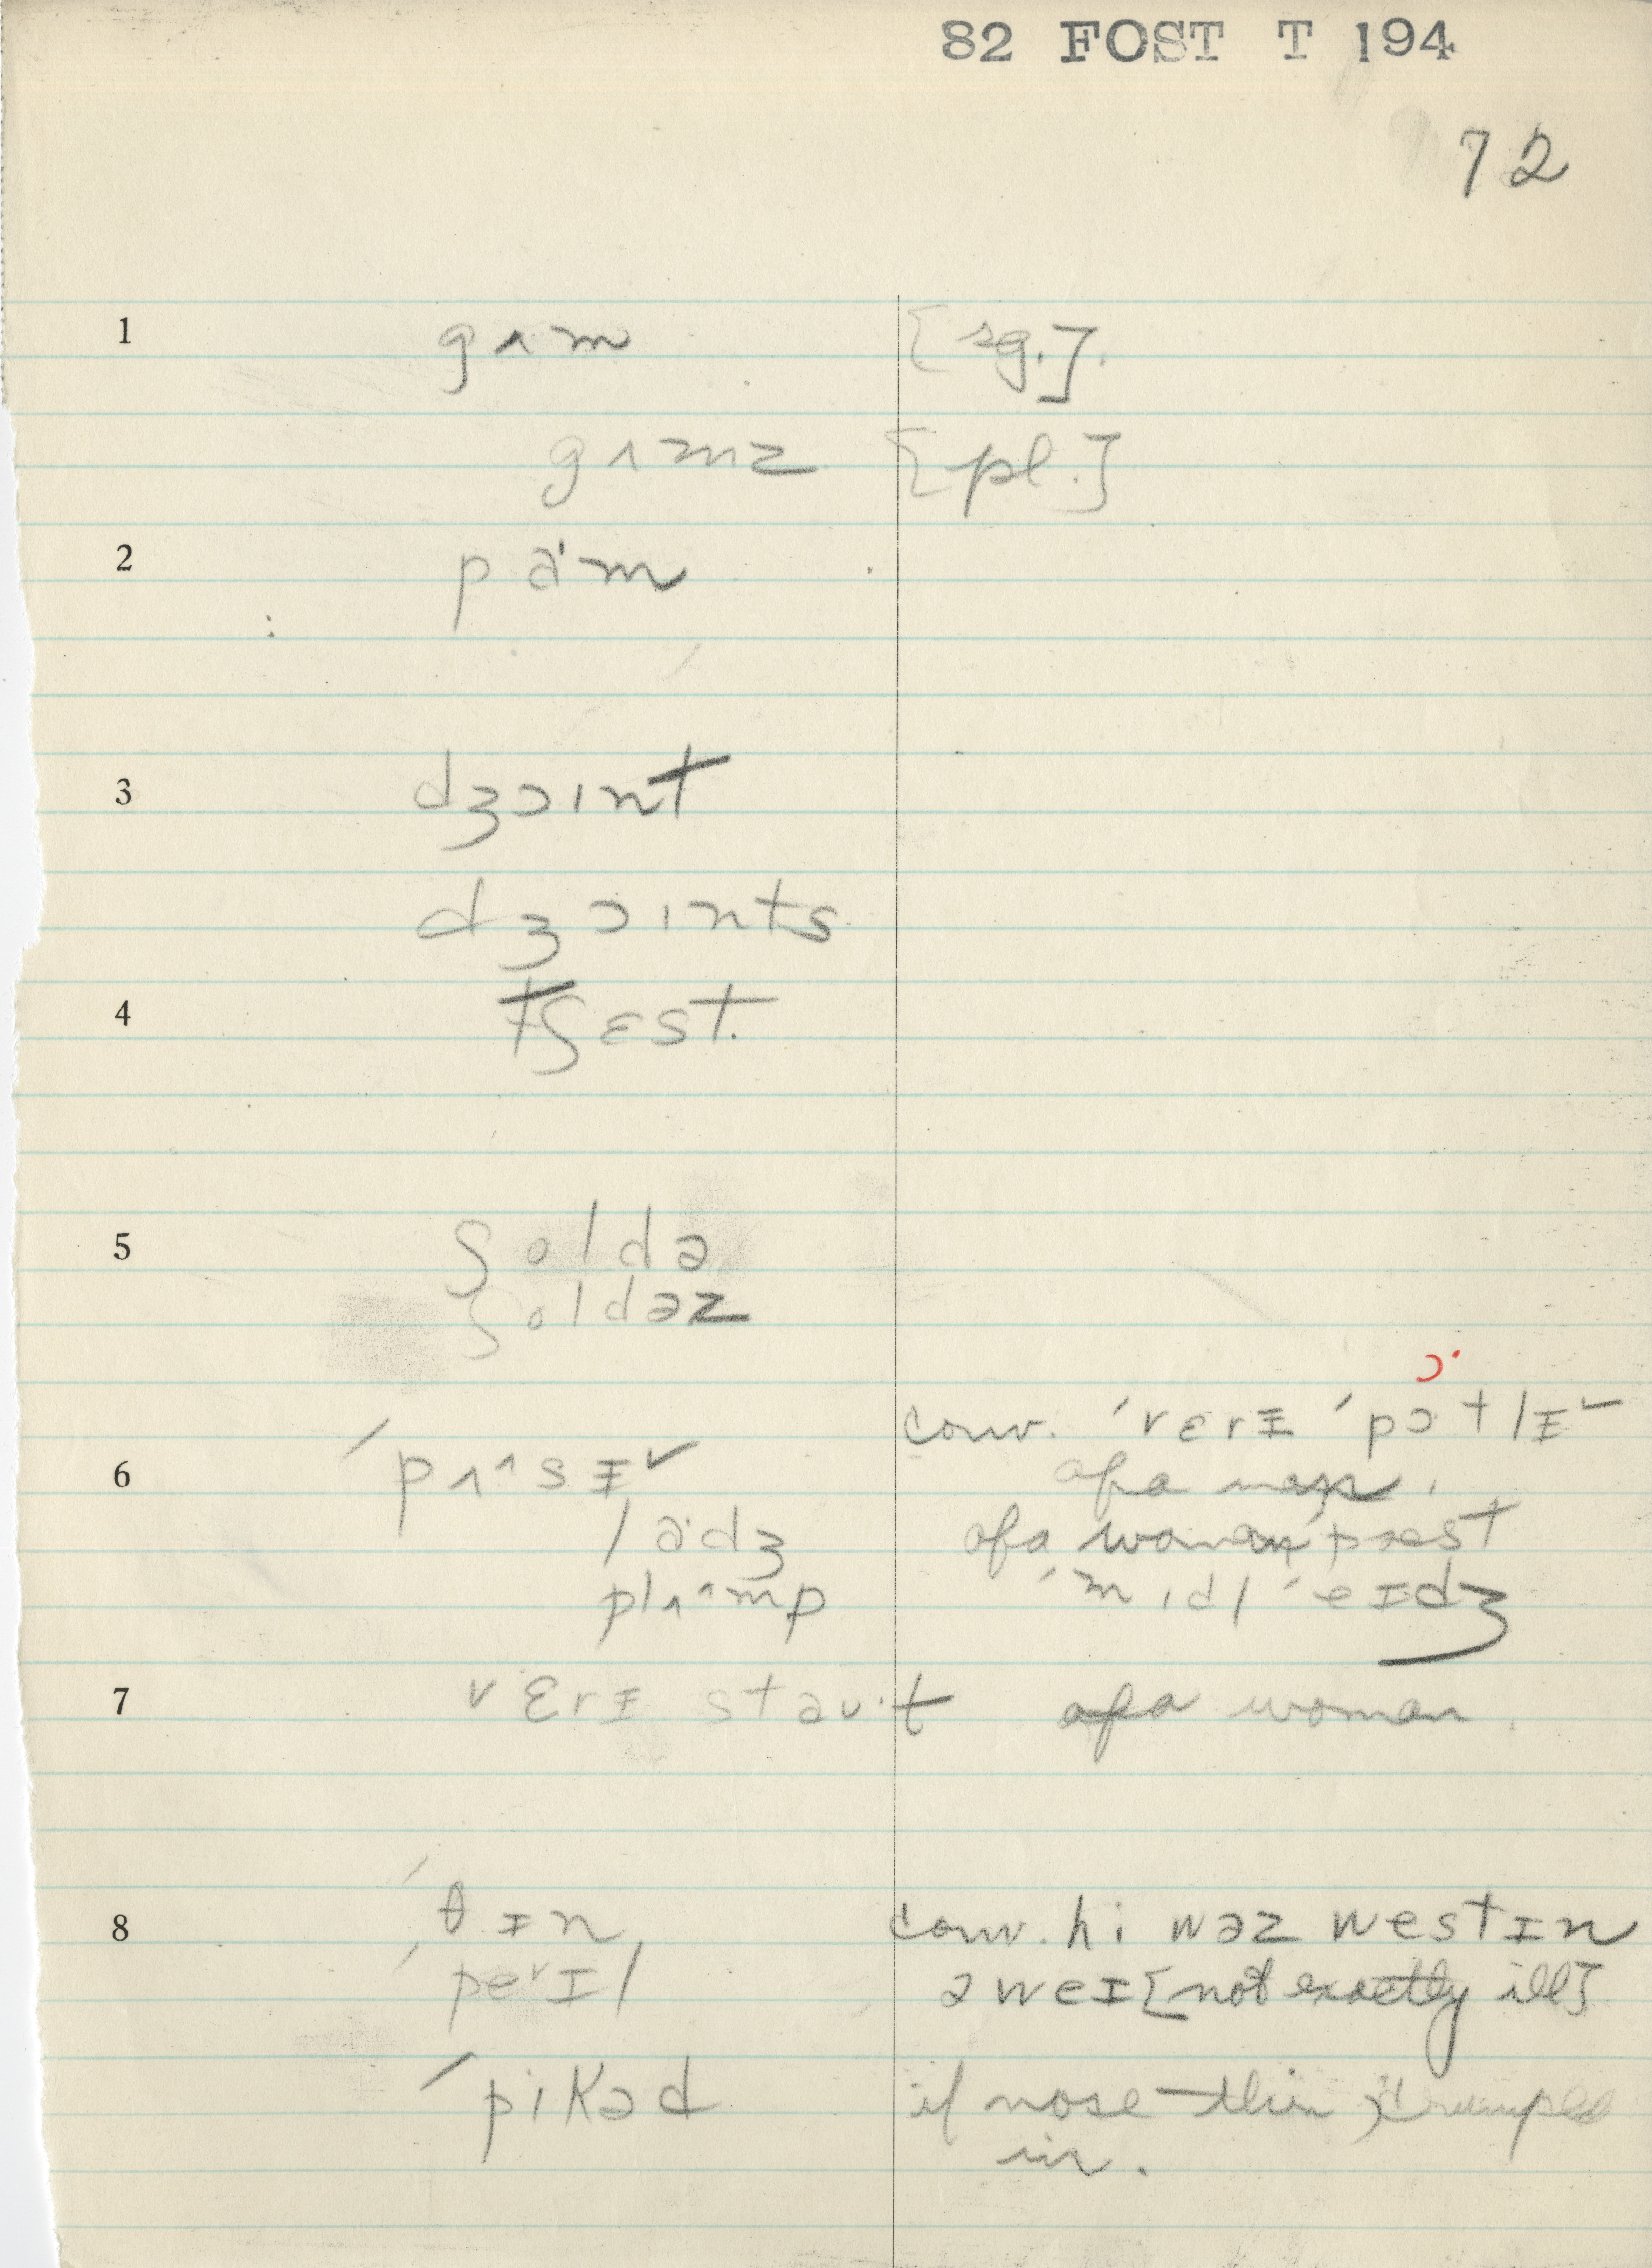 82 FOST T 194
72
1 gʌm [sg.].
gʌmz [pl.]
2 pa'm
3 dʒɔɪnt
dʒɔɪnts
4 tʃɛst.
5 ʃoldə
ʃoldəz
ɔ·
conv. ´vɛrɪ ´pɔ·tlɪ˅
6 ´pʌ^sɪ˅ of a man.
ladʒ of a woman past
plʌ^mp ´mɪdl ´eɪdʒ
7 vɛrɪ staʊ·t of a woman.
8 ´θɪn, conv. hi wəz westɪn
´pe˅ɪl əweɪ [not exactly ill]
´pikəd if nose thin
in.